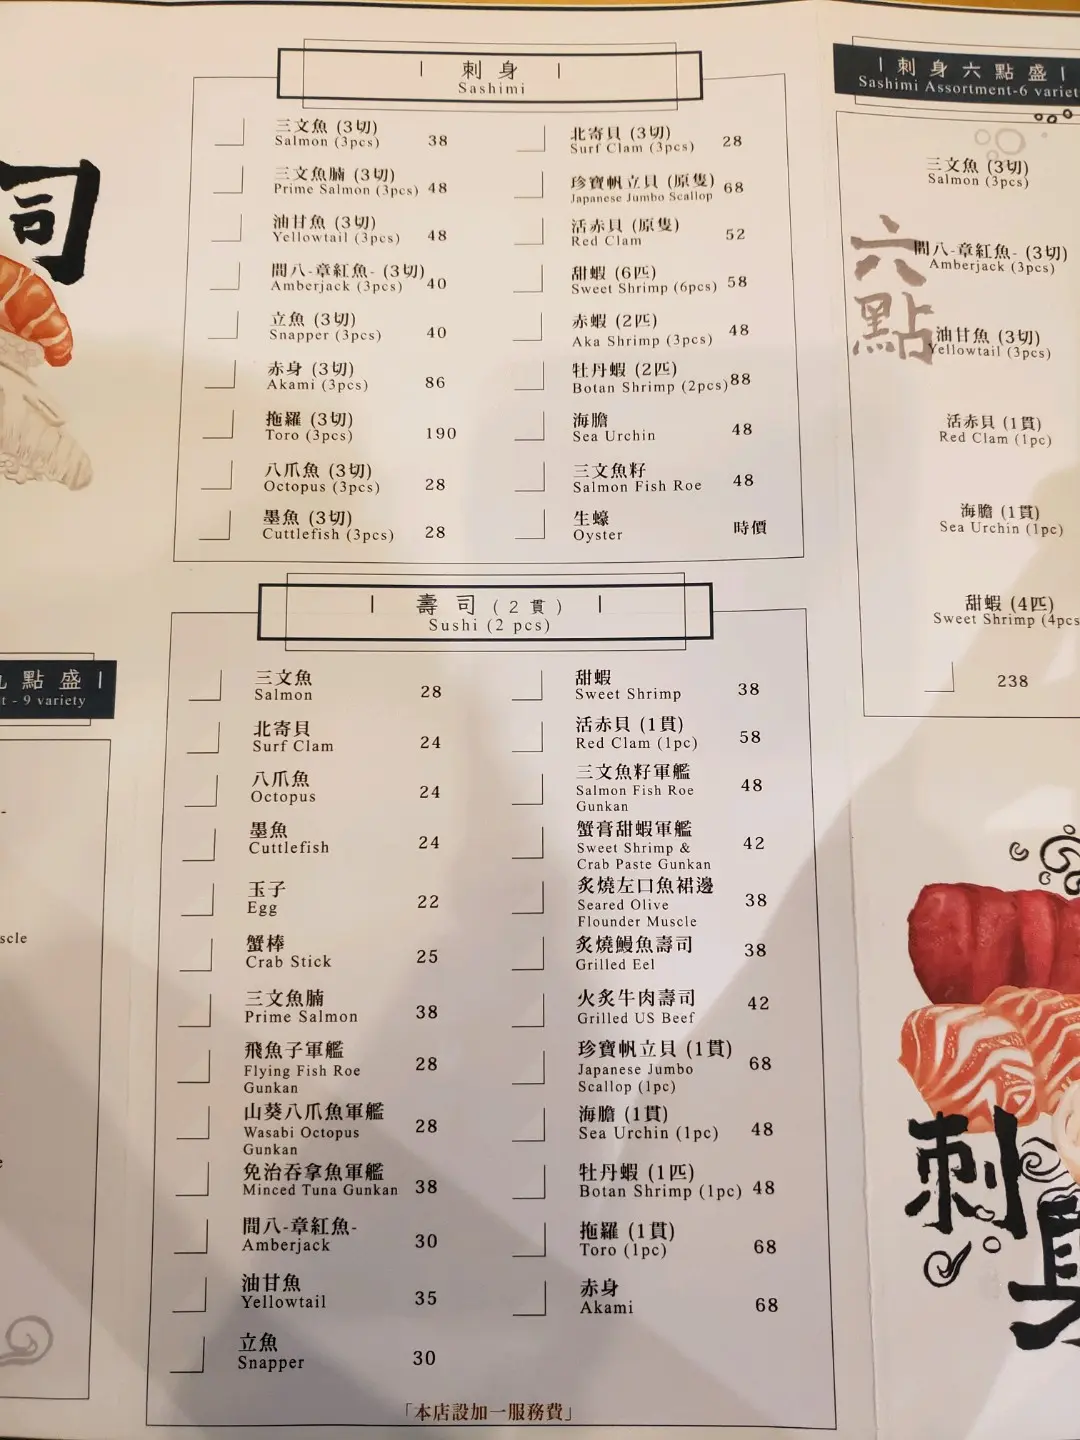 司
九點盛 |
t - 9 variety
scle
| 刺身 |
Sashimi
三文魚 (3切)
Salmon (3pcs) 38
三文魚腩 (3切)
Prime Salmon (3pcs) 48
油甘魚 (3切)
Yellowtail (3pcs) 48
間八-章紅魚- (3切)
Amberjack (3pcs) 40
立魚 (3切)
Snapper (3pcs) 40
赤身 (3切)
Akami (3pcs) 86
拖羅 (3切)
Toro (3pcs) 190
八爪魚 (3切)
Octopus (3pcs) 28
墨魚 (3切)
Cuttlefish (3pcs) 28
北寄貝 (3切)
Surf Clam (3pcs) 28
珍寶帆立貝 (原隻)
Japanese Jumbo Scallop 68
活赤貝 (原隻)
Red Clam 52
甜蝦 (6匹)
Sweet Shrimp (6pcs) 58
赤蝦 (2匹)
Aka Shrimp (3pcs) 48
牡丹蝦 (2匹)
Botan Shrimp (2pcs) 88
海膽
Sea Urchin 48
三文魚籽
Salmon Fish Roe 48
生蠔
Oyster 時價
| 壽司 (2貫) |
Sushi (2 pcs)
三文魚
Salmon 28
北寄貝
Surf Clam 24
八爪魚
Octopus 24
墨魚
Cuttlefish 24
玉子
Egg 22
蟹棒
Crab Stick 25
三文魚腩
Prime Salmon 38
飛魚子軍艦
Flying Fish Roe 28
Gunkan
山葵八爪魚軍艦
Wasabi Octopus 28
Gunkan
免治吞拿魚軍艦
Minced Tuna Gunkan 38
間八-章紅魚-
Amberjack 30
油甘魚
Yellowtail 35
立魚
Snapper 30
甜蝦
Sweet Shrimp 38
活赤貝 (1貫)
Red Clam (1pc) 58
三文魚籽軍艦
Salmon Fish Roe 48
Gunkan
蟹膏甜蝦軍艦
Sweet Shrimp & 42
Crab Paste Gunkan
炙燒左口魚裙邊
Seared Olive 38
Flounder Muscle
炙燒鰻魚壽司
Grilled Eel 38
火炙牛肉壽司
Grilled US Beef 42
珍寶帆立貝 (1貫)
Japanese Jumbo 68
Scallop (1pc)
海膽 (1貫)
Sea Urchin (1pc) 48
牡丹蝦 (1匹)
Botan Shrimp (1pc) 48
拖羅 (1貫)
Toro (1pc) 68
赤身
Akami 68
「本店設加一服務費」
| 刺身六點盛 |
Sashimi Assortment-6 variety
六點
三文魚 (3切)
Salmon (3pcs)
間八-章紅魚- (3切)
Amberjack (3pcs)
油甘魚 (3切)
Yellowtail (3pcs)
活赤貝 (1貫)
Red Clam (1pc)
海膽 (1貫)
Sea Urchin (1pc)
甜蝦 (4匹)
Sweet Shrimp (4pcs
238
刺身